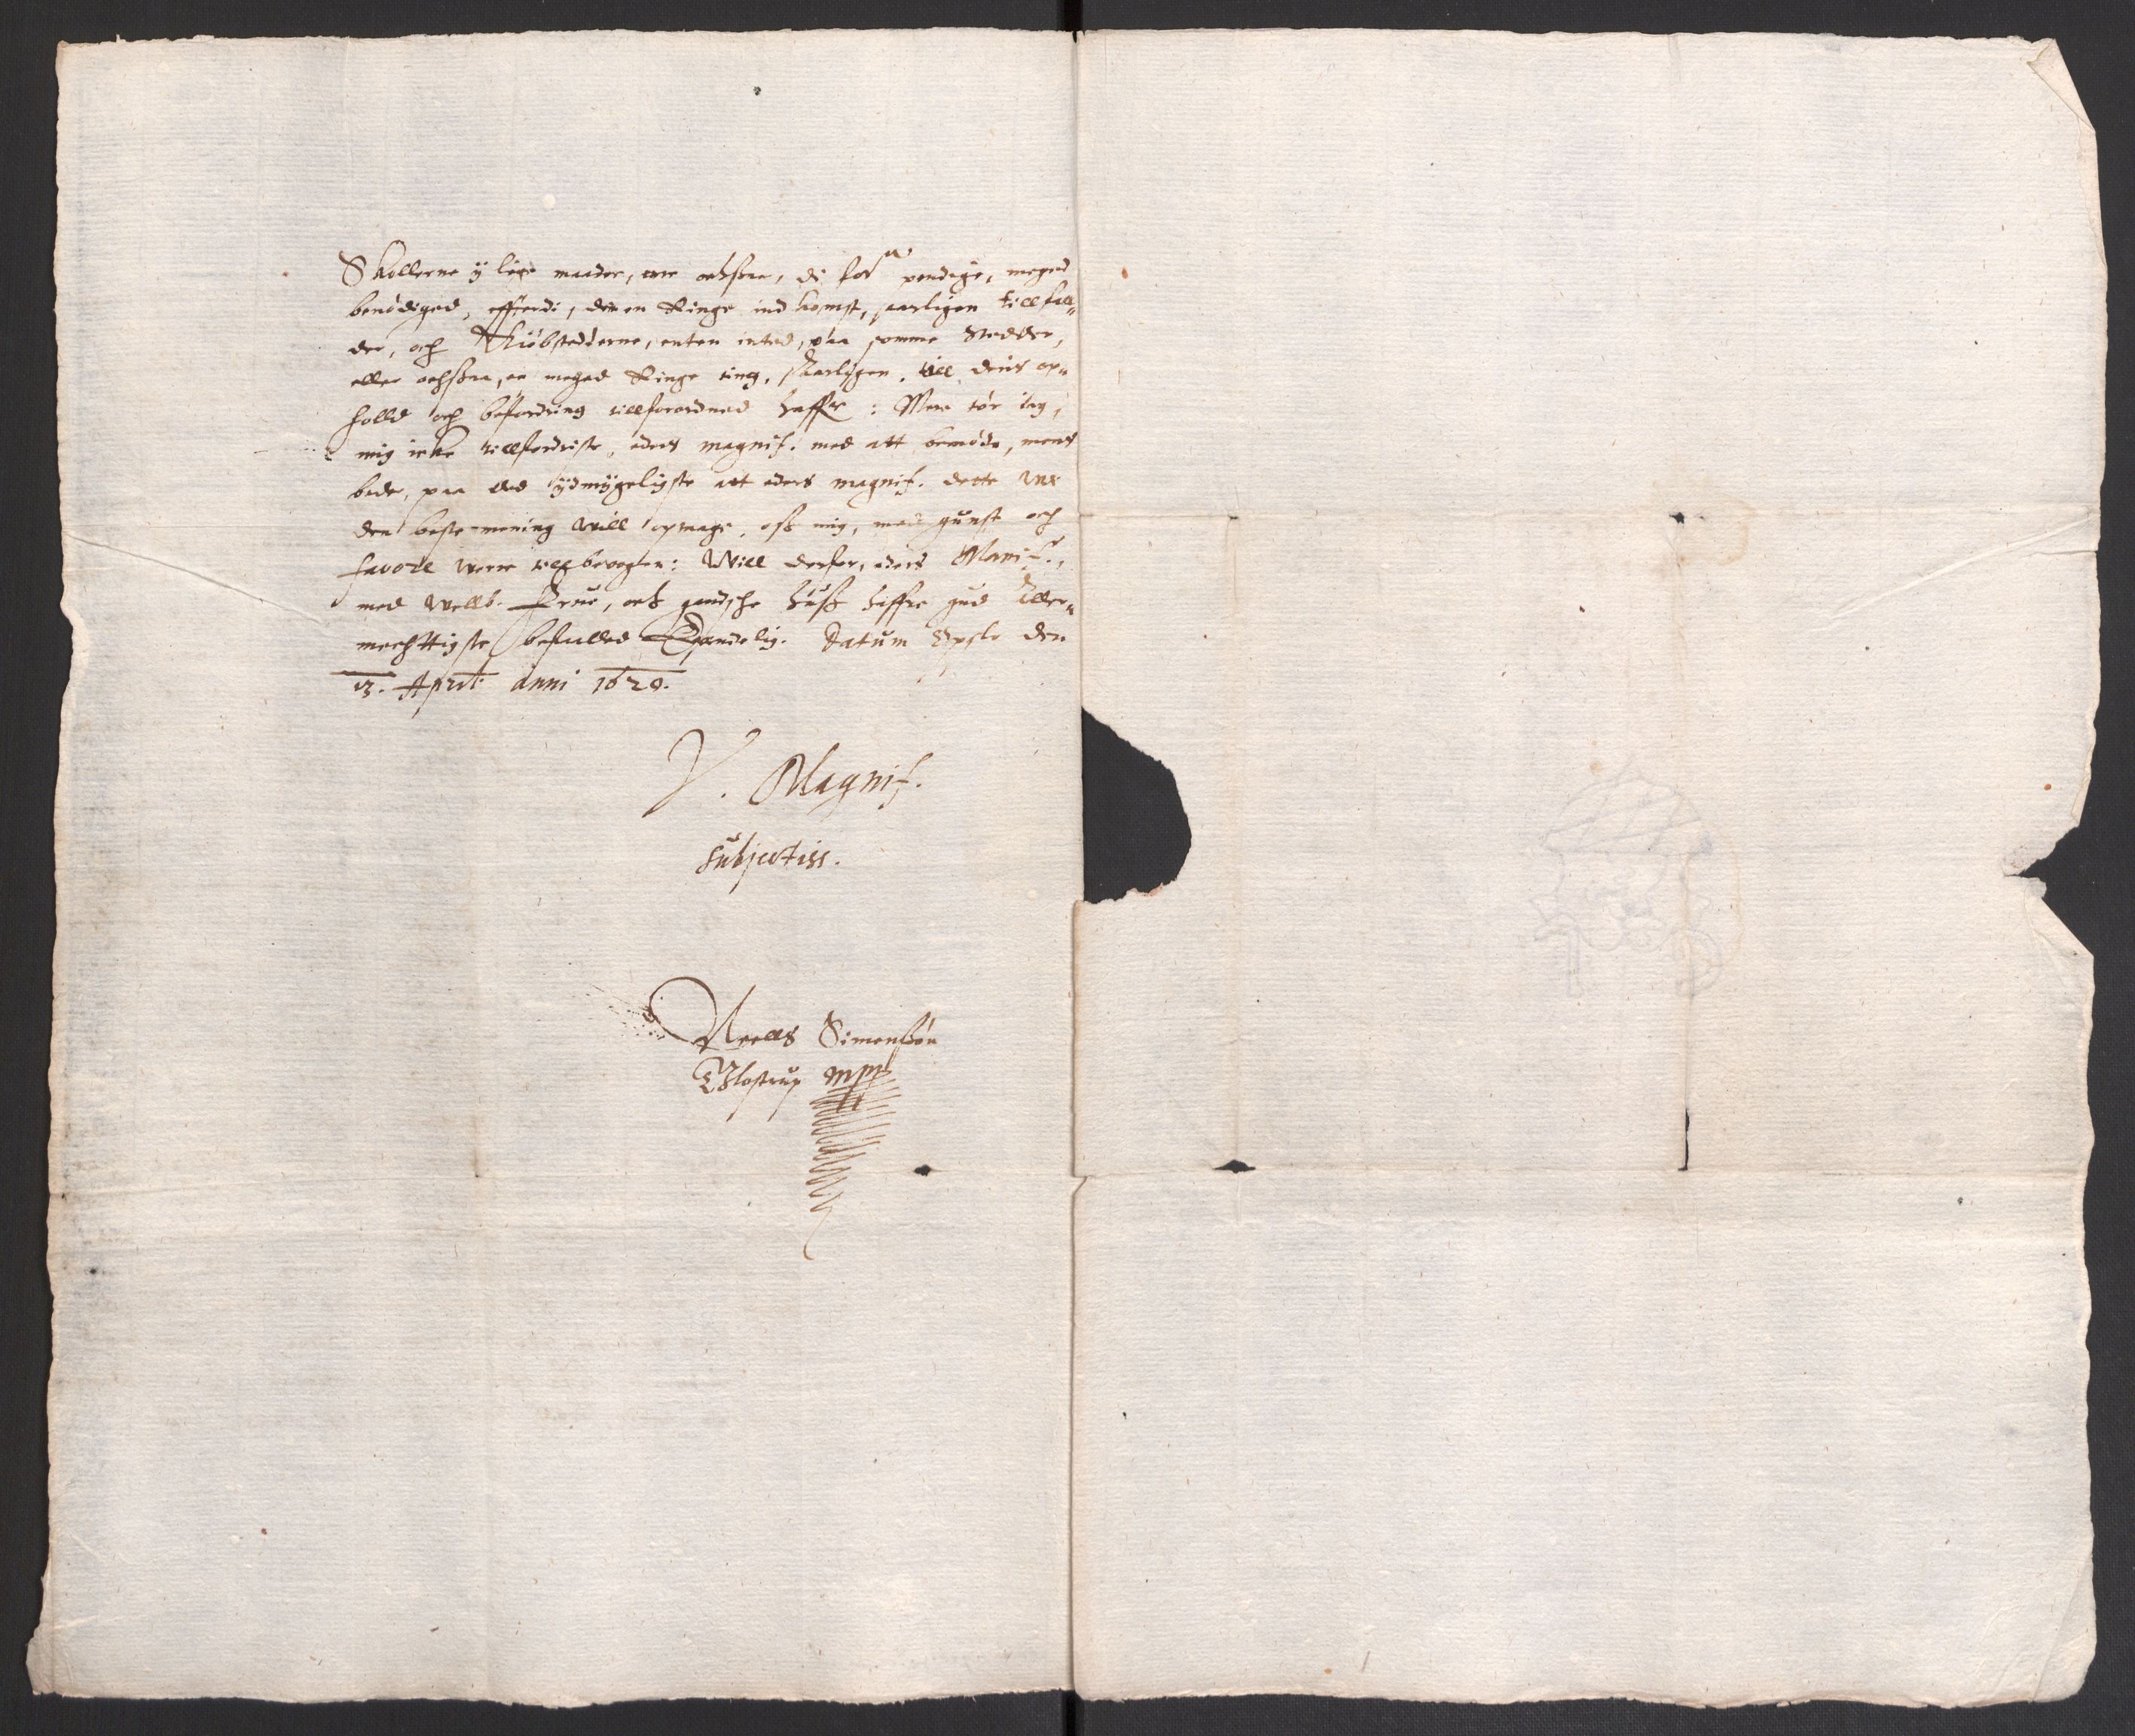 Skollerne y lige maader, ere ochssaa, di for pendinge, meged
benödiged, effterdi, der en Ringe ind komst, saarligen till fal„
der, och Kiöbstederne, enten inted, paa somme steder,
eller ochssaa, en meged Ringe ting, Aarligen, till deris op„
hold och befordring tillforordned haffr: Men tör ieg,
mig icke tillfordriste, eders magnif. med att bemöde, mens
beder, paa ded ydmygeligste att eders magnif. dette
den beste mening will optage, och mig, med gunst och
favore were till bevogen: Will derfor, eders Manif.,
med wellb. Frue, och gandsche huss haffue gud Aller„
mechttigste befalled Datum Opslo den
13. April: Anni 1620.
V. Magnif.
Subjectiss.
Neells Simenssön
Glostrup mpp